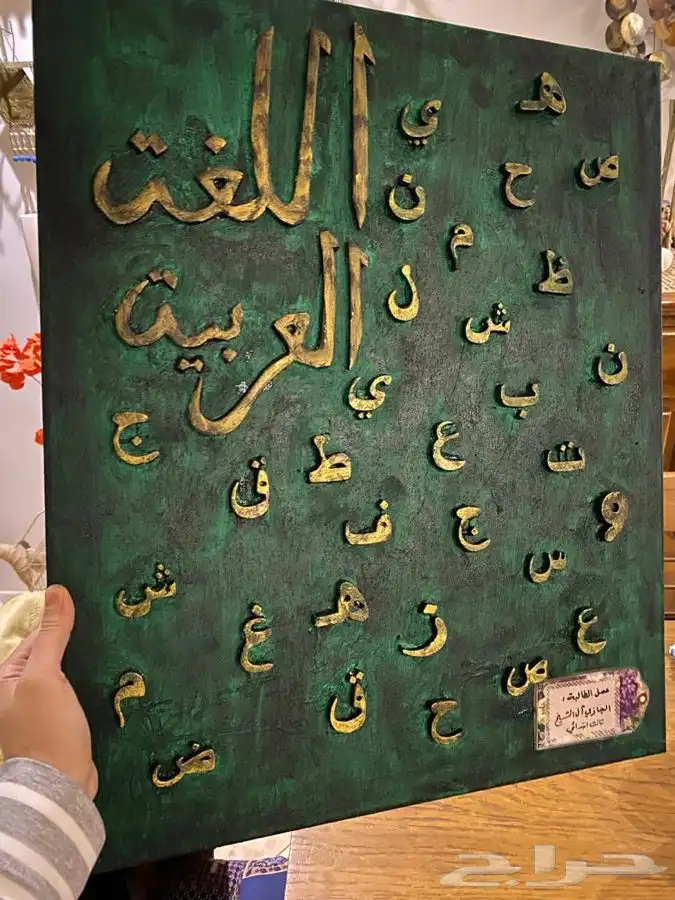 اللغة
العربية
هـ
ي
ص
ح
ن
م
ظ
ش
ن
ب
ي
ع
ت
ج
ط
ف
ج
و
س
ش
هـ
غ
ز
ع
ص
م
ق
ح
ض
عمل الطالبة :
الجازي آل الشيخ
ثالث ابتدائي
حراج